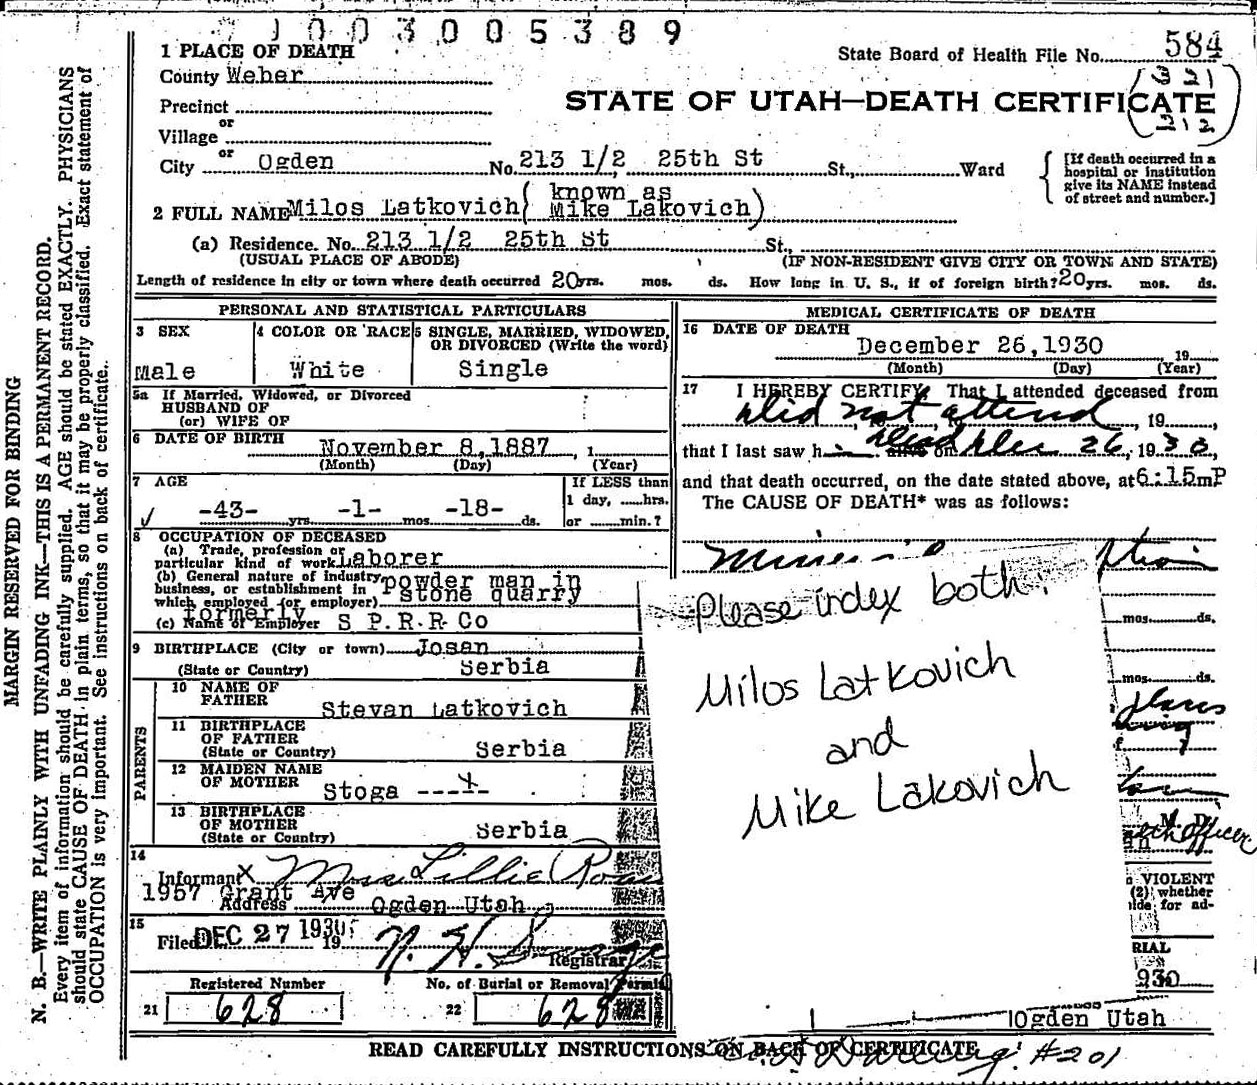 1003005389
1 PLACE OF DEATH
State Board of Health File No. 584
County Weber
(321
212)
Precinct
STATE OF UTAH—DEATH CERTIFICATE
or
Village
or
City Ogden No. 213 1/2 25th St St., Ward
[If death occurred in a
hospital or institution
give its NAME instead
of street and number.]
2 FULL NAME Milos Latkovich (known as
Mike Lakovich)
(a) Residence. No. 213 1/2 25th St St.,
(USUAL PLACE OF ABODE) (IF NON-RESIDENT GIVE CITY OR TOWN AND STATE)
Length of residence in city or town where death occurred 20 yrs. mos. ds. How long in U. S., if of foreign birth? 20 yrs. mos. ds.
PERSONAL AND STATISTICAL PARTICULARS
3 SEX
Male
4 COLOR OR RACE
White
5 SINGLE, MARRIED, WIDOWED,
OR DIVORCED (Write the word)
Single
5a If Married, Widowed, or Divorced
HUSBAND OF
(or) WIFE OF
6 DATE OF BIRTH November 8, 1887 , 1
(Month) (Day) (Year)
7 AGE
-43- yrs. -1- mos. -18- ds.
If LESS than
1 day, ......hrs.
or ........min.?
8 OCCUPATION OF DECEASED
(a) Trade, profession or
particular kind of work Laborer
(b) General nature of industry, powder man in
business, or establishment in stone quarry
which employed (or employer)
formerly
(c) Name of Employer S P.R.R. Co
9 BIRTHPLACE (City or town) Josan
(State or Country) Serbia
PARENTS
10 NAME OF
FATHER Stevan Latkovich
11 BIRTHPLACE
OF FATHER
(State or Country) Serbia
12 MAIDEN NAME
OF MOTHER Stoga ----
13 BIRTHPLACE
OF MOTHER
(State or Country) Serbia
14
Informant x Mrs Lillie
1957 Grant Ave
Address Ogden Utah
15
Filed DEC 27 1930 19
N. H.
Registrar
Registered Number
21 628
No. of Burial or Removal Permit
22 628
MEDICAL CERTIFICATE OF DEATH
16 DATE OF DEATH
December 26, 1930 19
(Month) (Day) (Year)
17 I HEREBY CERTIFY, That I attended deceased from
Did not attend , 19 ,
that I last saw h dead on Dec 26, 1930,
and that death occurred, on the date stated above, at 6:15mP
The CAUSE OF DEATH* was as follows:
Please index both:
Milos Latkovich
and
Mike Lakovich
mos. ds.
mos. ds.
M. D.
Officer
VIOLENT
(2) whether
for ad-
RIAL
930
Ogden Utah
#201
READ CAREFULLY INSTRUCTIONS ON BACK OF CERTIFICATE
MARGIN RESERVED FOR BINDING
N. B.—WRITE PLAINLY WITH UNFADING INK—THIS IS A PERMANENT RECORD.
Every item of information should be carefully supplied. AGE should be stated EXACTLY. PHYSICIANS
should state CAUSE OF DEATH in plain terms, so that it may be properly classified. Exact statement of
OCCUPATION is very important. See instructions on back of certificate.